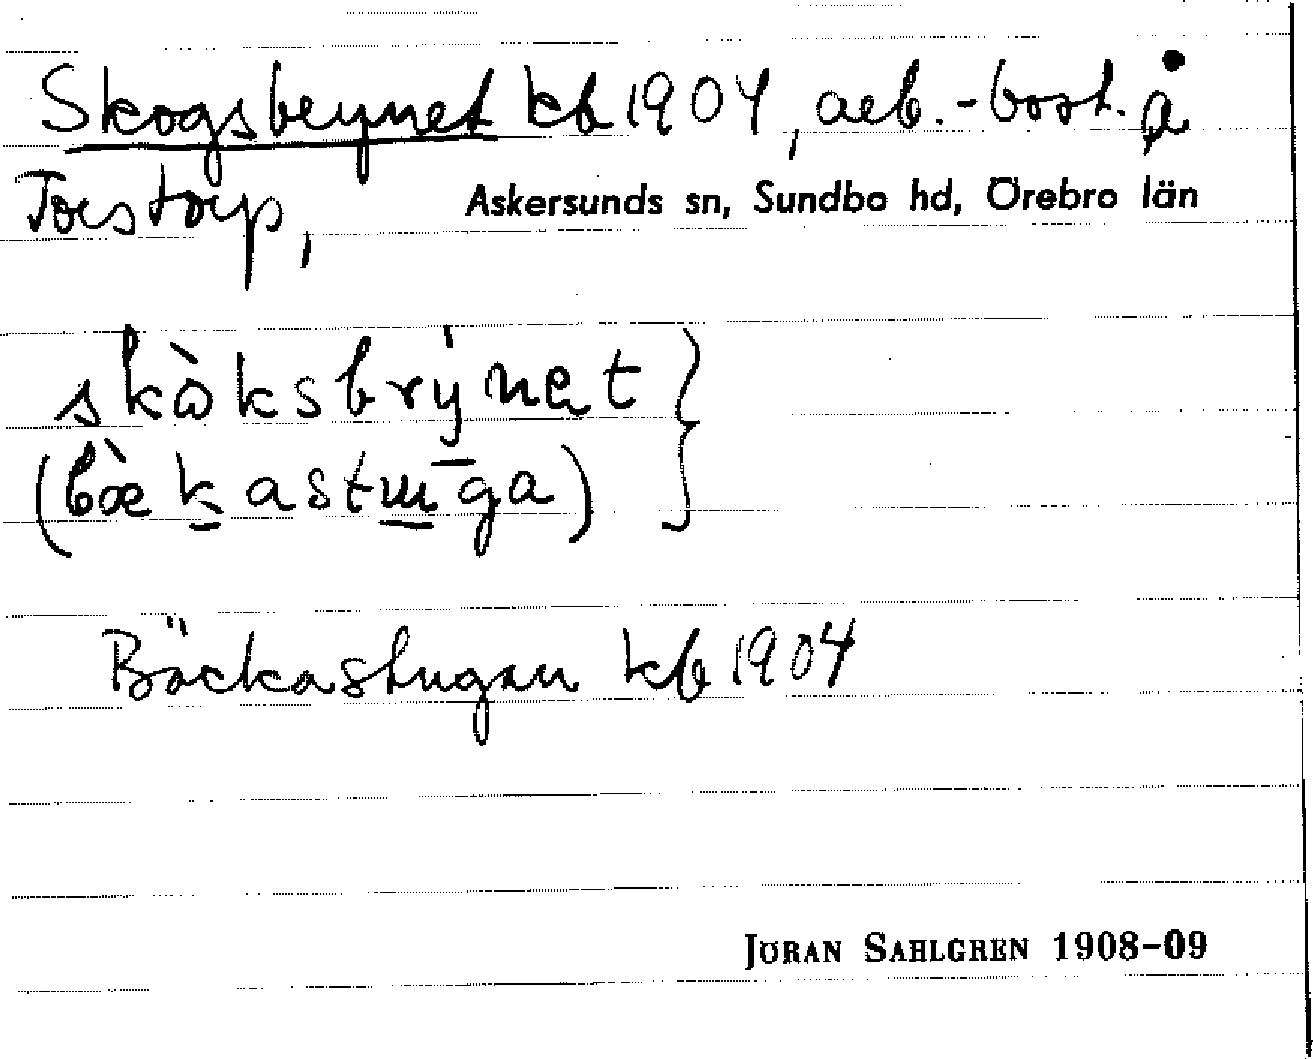 Skogsbrynet kb 1904, arb.-bost. å
Torstorp, Askersunds sn, Sundbo hd, Örebro län
skò̀ksbrýnet }
(bæ̀kastɯ̄ga)
Bäckastugan kb 1904
JÖRAN SAHLGREN 1908-09